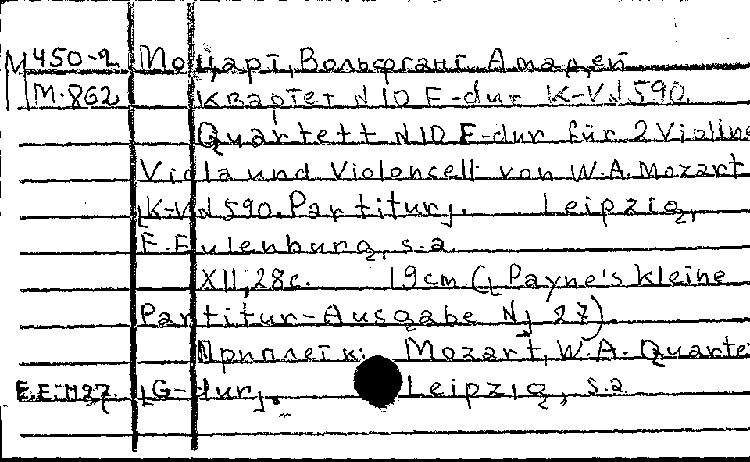 М 450-2 Моцарт, Вольфганг Амадей
М-862 Квартет N 10 F-dur K-V N 590.
Quartett N 10 F-dur für 2 Violine
Viola und Violoncell von W.A. Mozart
[K-V N 590. Partitur]. Leipzig,
E. Eulenburg, s.a.
XII, 28 c. 19 cm (Payne's kleine
Partitur-Ausgabe N 27)
Приплетн: Mozart, W.A. Quarte
E.E. N27 [G-dur]. Leipzig, s.a.